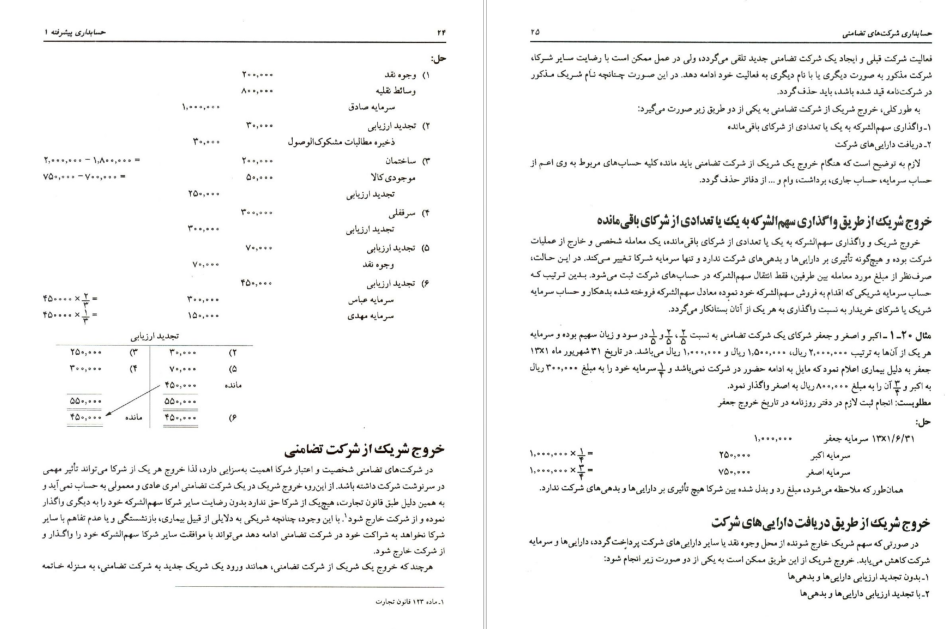 ۲۴ حسابداری پیشرفته ۱
حل:
۱) وجوه نقد ۲۰۰,۰۰۰
وسائط نقلیه ۸۰۰,۰۰۰
سرمایه صادق ۱,۰۰۰,۰۰۰
۲) تجدید ارزیابی ۳۰,۰۰۰
ذخیره مطالبات مشکوک‌الوصول ۳۰,۰۰۰
۳) ساختمان ۲۰۰,۰۰۰ = ۲,۰۰۰,۰۰۰ − ۱,۸۰۰,۰۰۰
موجودی کالا ۵۰,۰۰۰ = ۷۵۰,۰۰۰ − ۷۰۰,۰۰۰
تجدید ارزیابی ۲۵۰,۰۰۰
۴) سرقفلی ۳۰۰,۰۰۰
تجدید ارزیابی ۳۰۰,۰۰۰
۵) تجدید ارزیابی ۷۰,۰۰۰
وجوه نقد ۷۰,۰۰۰
۶) تجدید ارزیابی ۴۵۰,۰۰۰
سرمایه عباس ۳۰۰,۰۰۰ = ۴۵۰۰۰۰ × ۲/۳
سرمایه مهدی ۱۵۰,۰۰۰ = ۴۵۰۰۰۰ × ۱/۳
تجدید ارزیابی
۲) ۳۰,۰۰۰ ۳) ۲۵۰,۰۰۰
۵) ۷۰,۰۰۰ ۴) ۳۰۰,۰۰۰
مانده ۴۵۰,۰۰۰
۵۵۰,۰۰۰ ۵۵۰,۰۰۰
۶) ۴۵۰,۰۰۰ مانده ۴۵۰,۰۰۰
خروج شریک از شرکت تضامنی
در شرکت‌های تضامنی شخصیت و اعتبار شرکا اهمیت به‌سزایی دارد، لذا خروج هر یک از شرکا می‌تواند تأثیر مهمی
در سرنوشت شرکت داشته باشد. از این‌رو، خروج شریک در یک شرکت تضامنی امری عادی و معمولی به حساب نمی‌آید و
به همین دلیل طبق قانون تجارت، هیچ‌یک از شرکا حق ندارد بدون رضایت سایر شرکا سهم‌الشرکه خود را به دیگری واگذار
نموده و از شرکت خارج شود۱. با این وجود، چنانچه شریکی به دلایلی از قبیل بیماری، بازنشستگی و یا عدم تفاهم با سایر
شرکا نخواهد به شراکت خود در شرکت تضامنی ادامه دهد می‌تواند با موافقت سایر شرکا سهم‌الشرکه خود را واگذار و
از شرکت خارج شود.
هرچند که خروج یک شریک از شرکت تضامنی، همانند ورود یک شریک جدید به شرکت تضامنی، به منزله خاتمه
۱ـ ماده ۱۲۳ قانون تجارت
حسابداری شرکت‌های تضامنی ۲۵
فعالیت شرکت قبلی و ایجاد یک شرکت تضامنی جدید تلقی می‌گردد، ولی در عمل ممکن است با رضایت سایر شرکا،
شرکت مذکور به صورت دیگری یا با نام دیگری به فعالیت خود ادامه دهد. در این صورت چنانچه نام شریک مذکور
در شرکت‌نامه قید شده باشد، باید حذف گردد.
به طور کلی، خروج شریک از شرکت تضامنی به یکی از دو طریق زیر صورت می‌گیرد:
۱ـ واگذاری سهم‌الشرکه به یک یا تعدادی از شرکای باقی‌مانده
۲ـ دریافت دارایی‌های شرکت
لازم به توضیح است که هنگام خروج یک شریک از شرکت تضامنی باید مانده کلیه حساب‌های مربوط به وی اعم از
حساب سرمایه، حساب جاری، برداشت، وام و ... از دفاتر حذف گردد.
خروج شریک از طریق واگذاری سهم‌الشرکه به یک یا تعدادی از شرکای باقی‌مانده
خروج شریک و واگذاری سهم‌الشرکه به یک یا تعدادی از شرکای باقی‌مانده، یک معامله شخصی و خارج از عملیات
شرکت بوده و هیچ‌گونه تأثیری بر دارایی‌ها و بدهی‌های شرکت ندارد و تنها سرمایه شرکا تغییر می‌کند. در این حالت،
صرف‌نظر از مبلغ مورد معامله بین طرفین، فقط انتقال سهم‌الشرکه در حساب‌های شرکت ثبت می‌شود. بدین ترتیب که
حساب سرمایه شریکی که اقدام به فروش سهم‌الشرکه خود نموده معادل سهم‌الشرکه فروخته شده بدهکار و حساب سرمایه
شریک یا شرکای خریدار به نسبت واگذاری به هر یک از آنان بستانکار می‌گردد.
مثال ۲۰ـ۱ـ اکبر و اصغر و جعفر شرکای یک شرکت تضامنی به نسبت ۲/۵، ۲/۵ و ۱/۵ در سود و زیان سهیم بوده و سرمایه
هر یک از آن‌ها به ترتیب ۲,۰۰۰,۰۰۰ ریال، ۱,۵۰۰,۰۰۰ ریال و ۱,۰۰۰,۰۰۰ ریال می‌باشد. در تاریخ ۳۱ شهریور ماه ۱۳x۱
جعفر به دلیل بیماری اعلام نمود که مایل به ادامه حضور در شرکت نمی‌باشد و ۱/۴ سرمایه خود را به مبلغ ۳۰۰,۰۰۰ ریال
به اکبر و ۳/۴ آن را به مبلغ ۸۰۰,۰۰۰ ریال به اصغر واگذار نمود.
مطلوبست: انجام ثبت لازم در دفتر روزنامه در تاریخ خروج جعفر
حل:
۱۳x۱/۶/۳۱ سرمایه جعفر ۱,۰۰۰,۰۰۰
سرمایه اکبر ۲۵۰,۰۰۰ = ۱,۰۰۰,۰۰۰ × ۱/۴
سرمایه اصغر ۷۵۰,۰۰۰ = ۱,۰۰۰,۰۰۰ × ۳/۴
همان‌طور که ملاحظه می‌شود، مبلغ رد و بدل شده بین شرکا هیچ تأثیری بر دارایی‌ها و بدهی‌های شرکت ندارد.
خروج شریک از طریق دریافت دارایی‌های شرکت
در صورتی که سهم شریک خارج شونده از محل وجوه نقد یا سایر دارایی‌های شرکت پرداخت گردد، دارایی‌ها و سرمایه
شرکت کاهش می‌یابد. خروج شریک از این طریق ممکن است به یکی از دو صورت زیر انجام شود:
۱ـ بدون تجدید ارزیابی دارایی‌ها و بدهی‌ها
۲ـ با تجدید ارزیابی دارایی‌ها و بدهی‌ها